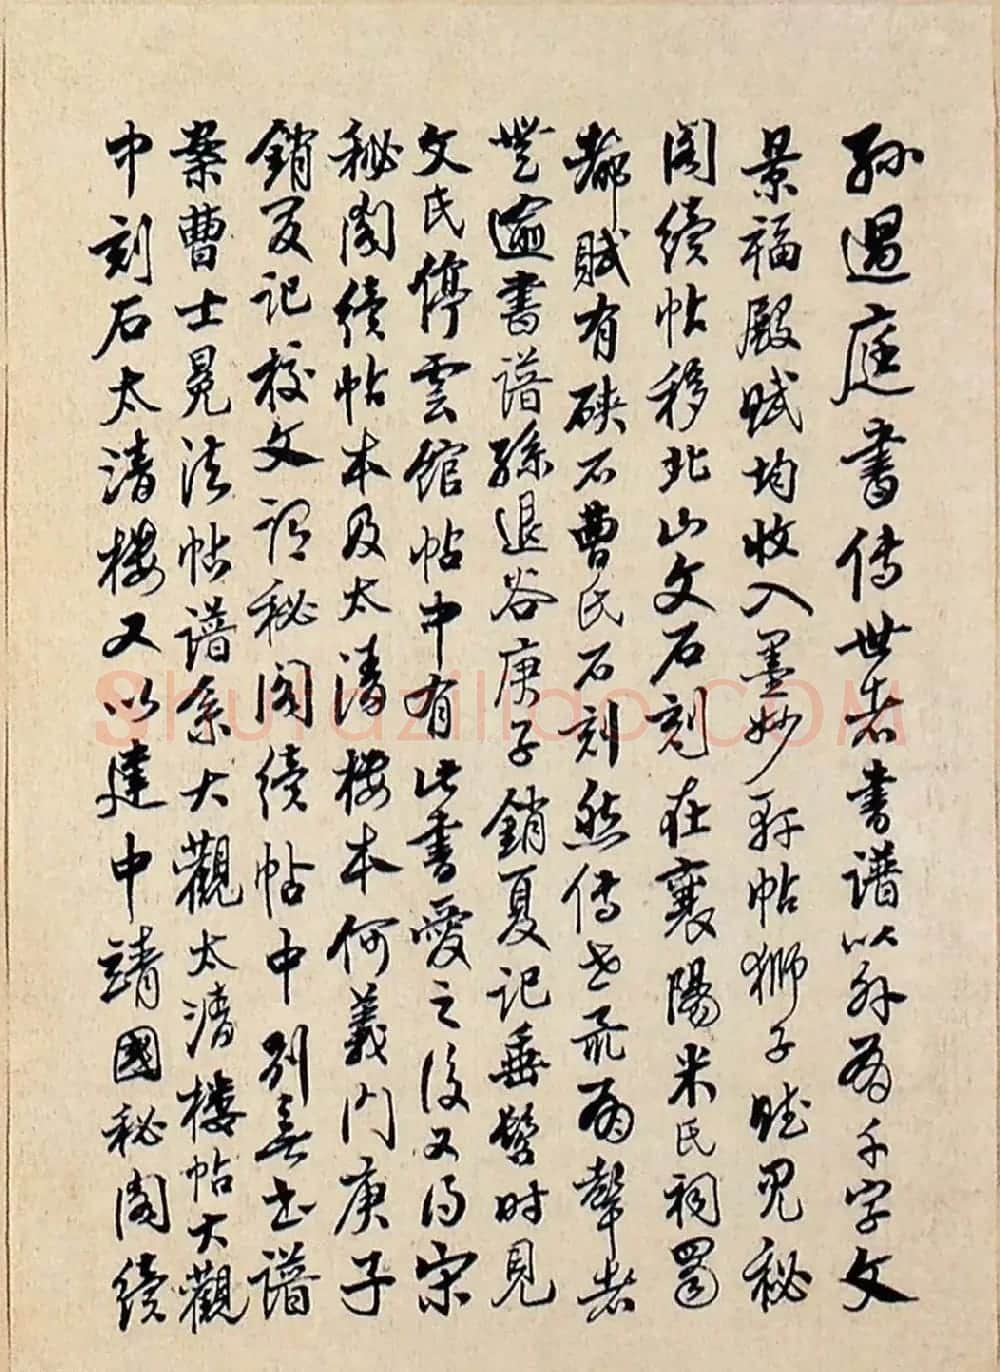 孫過庭書傳世者書譜以外有千字文
景福殿賦均收入墨妙軒帖獅子賦見秘
閣續帖移北山文石刻在襄陽米氏祠蜀
都賦有硤石曹氏石刻然傳世而聲者
莫逾書譜孫退谷庚子銷夏記垂髫時見
文氏停雲館帖中有此書愛之後又得宋
秘閣續帖本及太清樓本何義門庚子
銷夏記校文謂秘閣續帖中別無書譜
案曹士冕法帖譜系大觀太清樓帖大觀
中刻石太清樓又以建中靖國秘閣續
Shufaziliao.COM